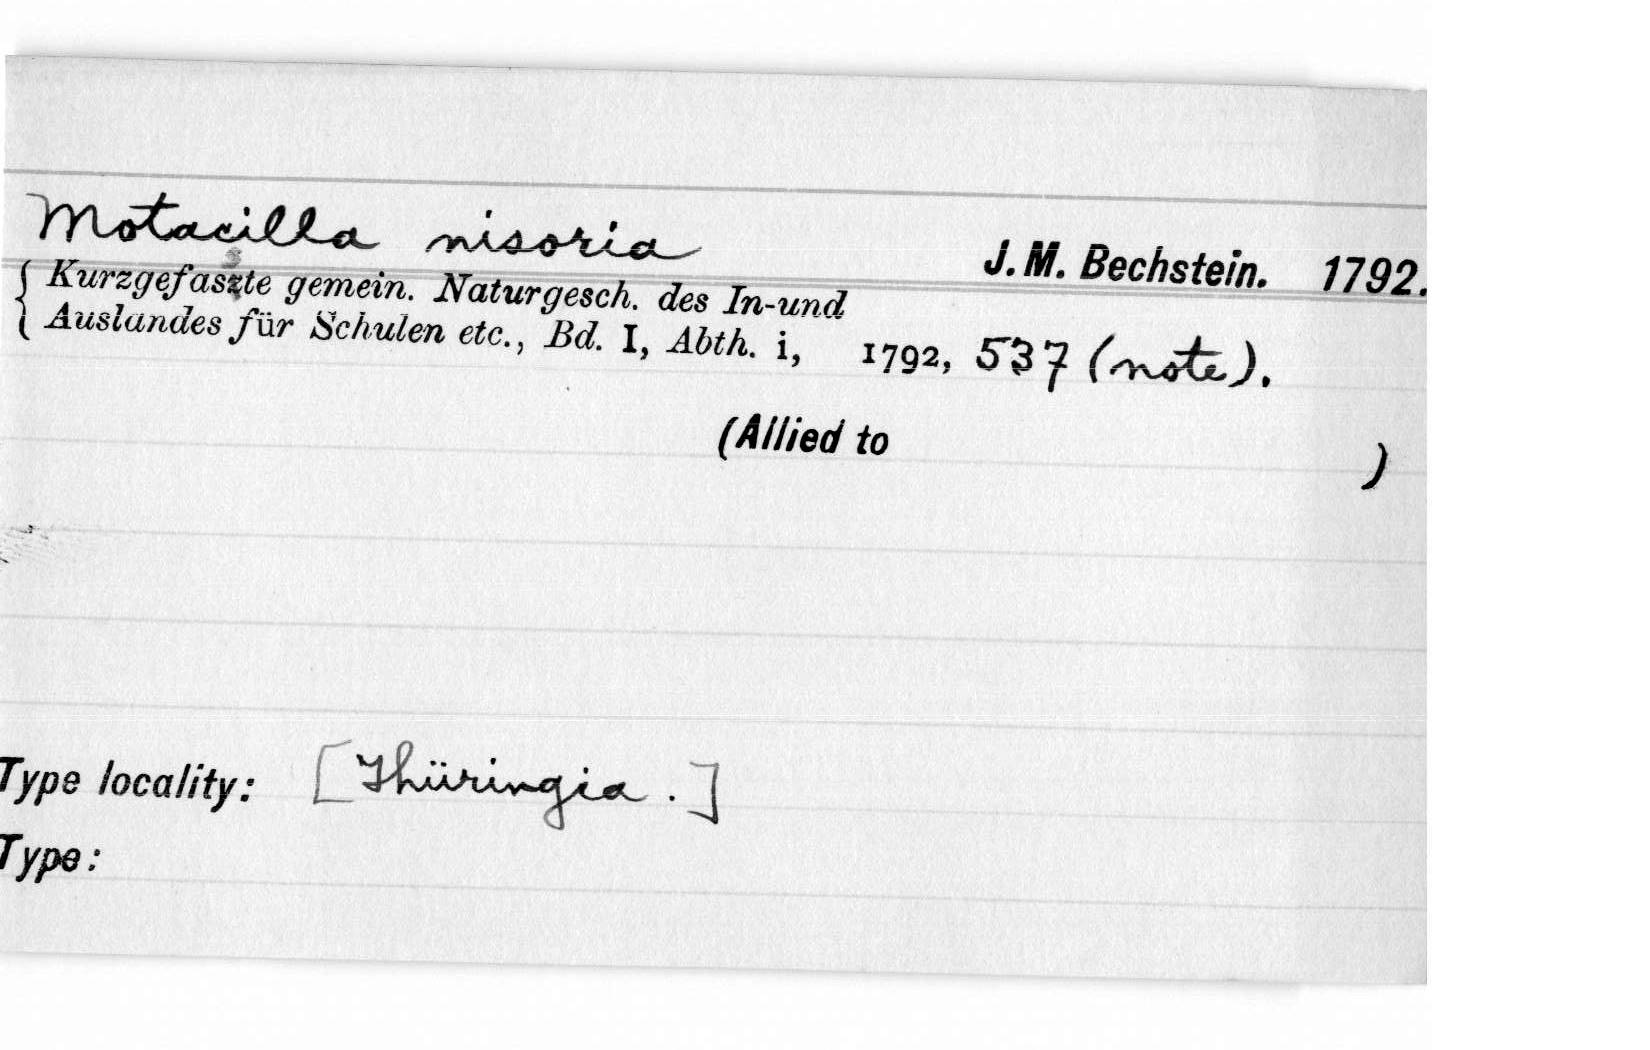 Motacilla nisoria J. M. Bechstein. 1792.
Kurzgefaszte gemein. Naturgesch. des In-und
Auslandes für Schulen etc., Bd. I, Abth. i, 1792, 537 (note).
(Allied to )
Type locality: [Thüringia.]
Type: